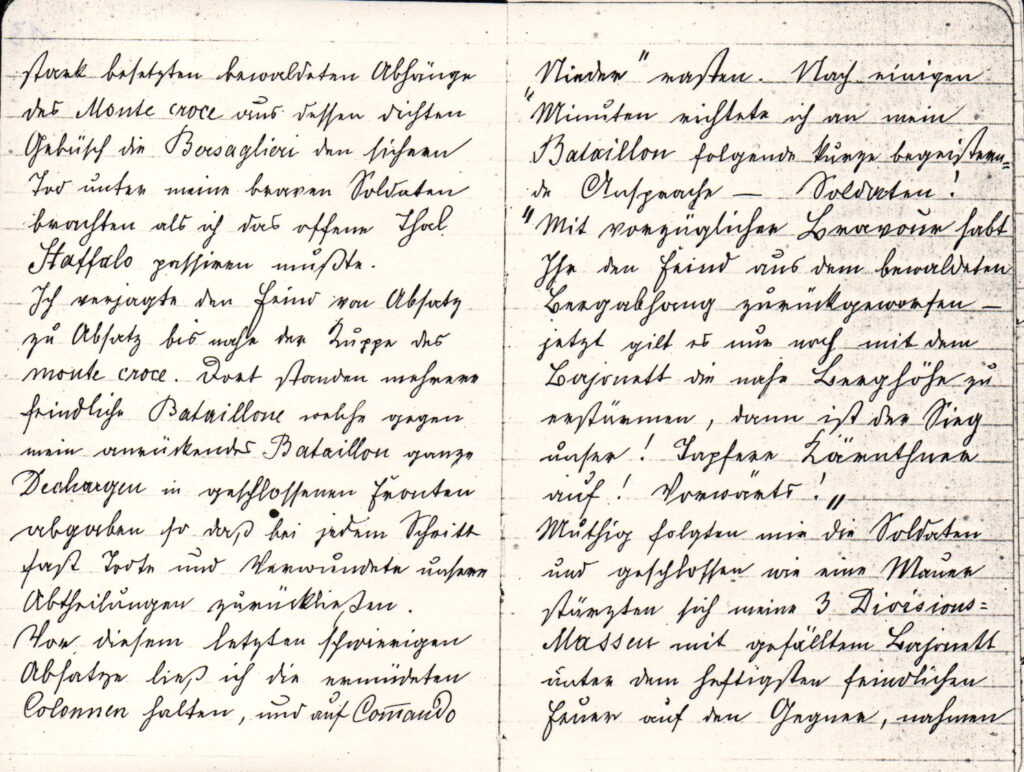 stark besetzten bewaldeten Abhänge
des Monte croce aus dessen dichten
Gebüsch die Bersaglieri den sichern
Tod unter meine braven Soldaten
brachten als ich das offene Thal
Staffalo passiren mußte.
Ich verjagte den Feind von Absatz
zu Absatz bis nahe der Kuppe des
monte croce. Dort standen mehrere
feindliche Bataillone welche gegen
mein anrückendes Bataillon ganze
Dechargen in geschlossenen Fronten
abgaben so daß bei jedem Schritt
fast Todte und Verwundete unsere
Abtheilungen zurückließen.
Vor diesem letzten schwierigen
Absatze ließ ich die ermüdeten
Colonnen halten, und auf Com̅ando
Nieder" rasten. Nach einigen
"Minuten richtete ich an mein
Bataillon folgende kurze begeistern=
de Ansprache — Soldaten!
"Mit vorzüglicher Bravour habt
Ihr den Feind aus dem bewaldeten
Bergabhang zurückgeworfen —
jetzt gilt es nur noch mit dem
Bajonett die nahe Berghöhe zu
erstürmen, dann ist der Sieg
unser! Tapfere Kärnthner
auf! Vorwärts!"
Muthig folgten mir die Soldaten
und geschlossen wie eine Mauer
stürzten sich meine 3 Divisions=
Massen mit gefälltem Bajonett
unter dem heftigsten feindlichen
Feuer auf den Gegner, nahmen